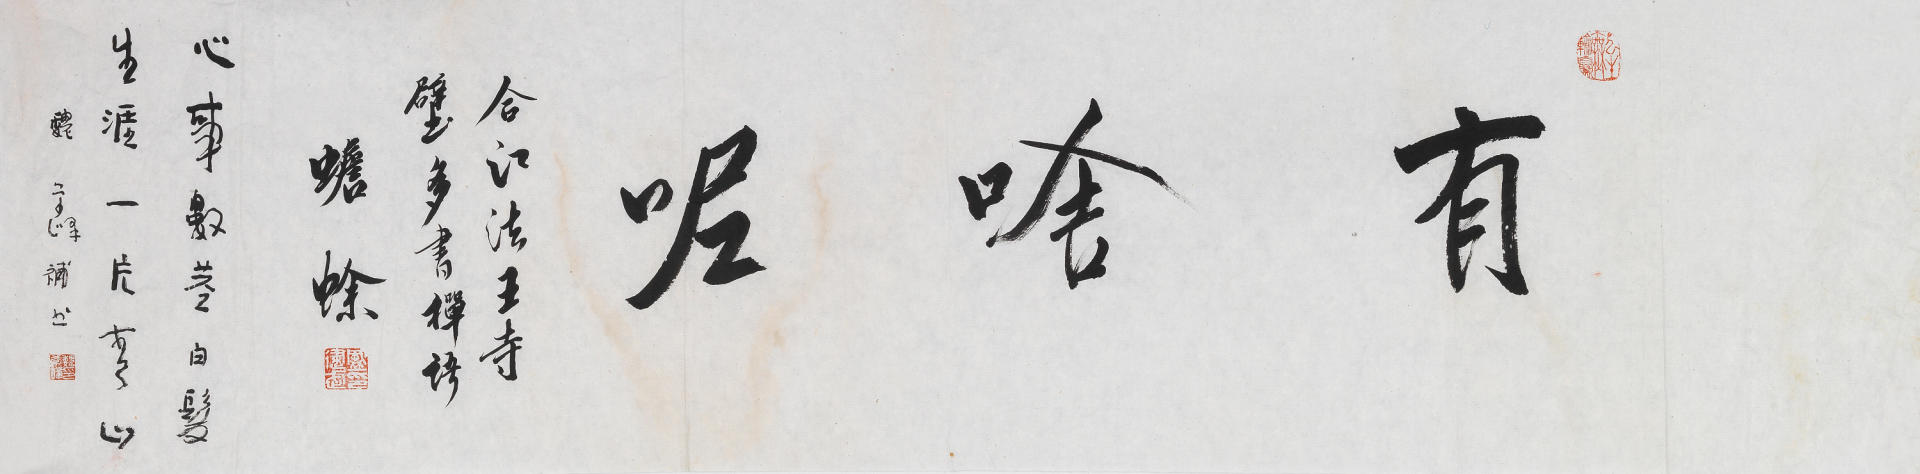 有啥呢
合江法王寺
壁多書禪語
蟾蜍
心事數莖白髮
生涯一片青山
峰補書